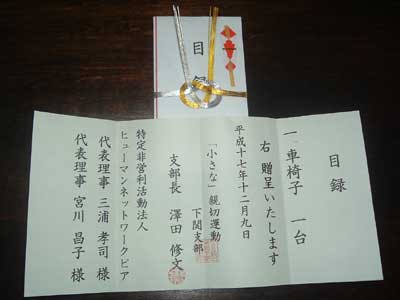 目録
目録
一、車椅子 一台
右 贈呈いたします
平成十七年十二月九日
「小さな」親切運動
下関支部
支部長 澤田 修文
特定非営利活動法人
ヒューマンネットワークピア
代表理事 三浦 孝司 様
代表理事 宮川 昌子 様